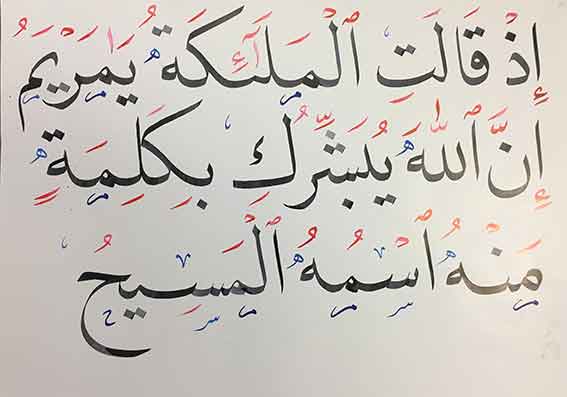 إِذْ قَالَتِ ٱلْمَلَٰٓئِكَةُ يَٰمَرْيَمُ
إِنَّ ٱللَّهَ يُبَشِّرُكِ بِكَلِمَةٍ
مِّنْهُ ٱسْمُهُ ٱلْمَسِيحُ